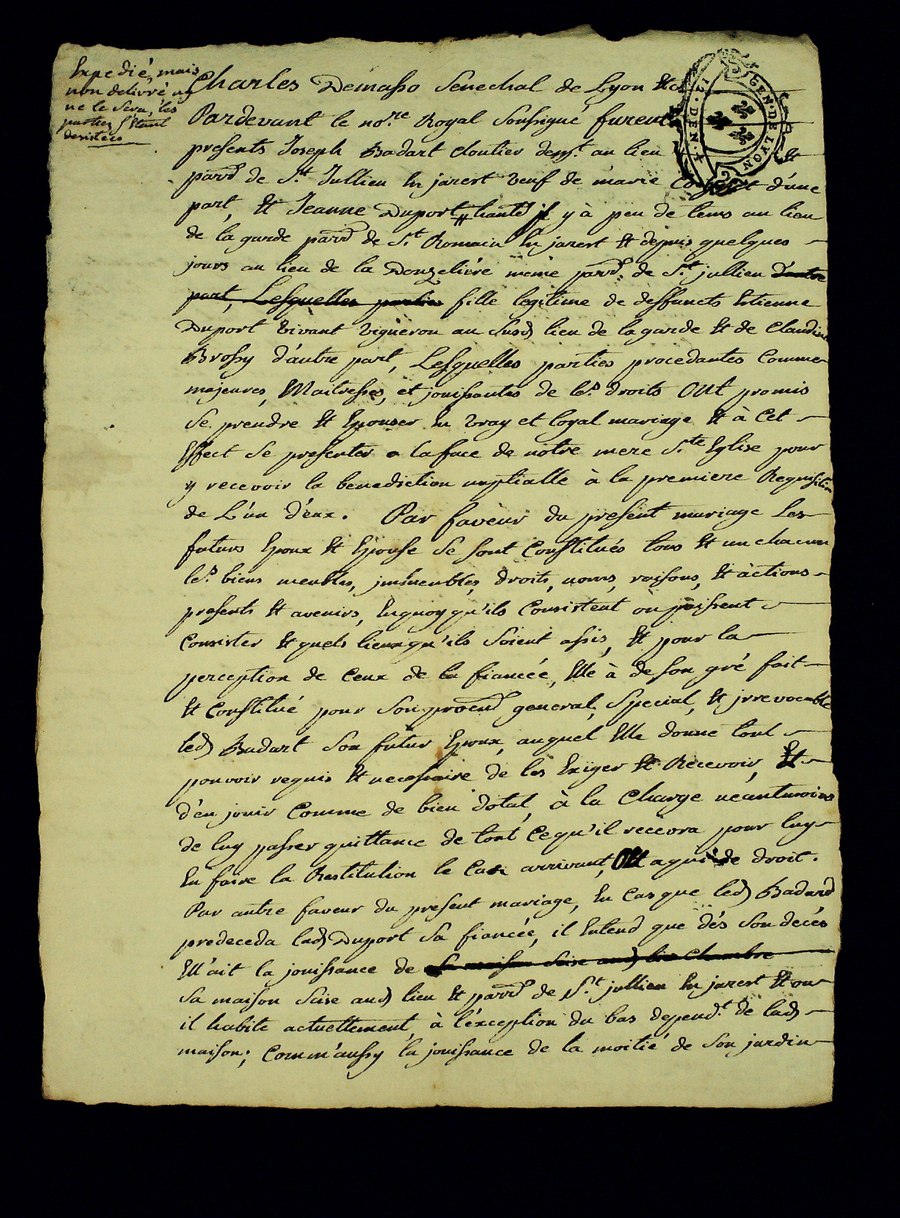 Expedié, mais
non delivré
ne le sera, les
parties s'etant
desistées
GEN. DE LYON
Charles Demasso Senechal de Lyon &c
Pardevant le no.re Royal Soussigné furent
presents Joseph Badart cloutier dem.t au lieu &
parr.e de S.t Jullien En jarest veuf de marie d'une
part, Et Jeanne Duport habitante il y à peu de tems au lieu
de la garde parr.e de S.t Romain En jarest Et depuis quelques
jours au lieu de la Donzelière même parr.e de S.t jullien d'autre
part, Lesquelles parties fille legitime de deffuncts Etienne
Duport vivant vigneron au Susd. lieu de la garde Et de Claudine
Brossy d'autre part, Lesquelles parties procedantes Comme
majeures, Maitresses, et jouissantes de le.s droits Ont promis
Se prendre Et Epouser En vray et loyal mariage Et à Cet
Effect Se presenter a la face de notre mere S.te Eglise pour
y recevoir la benediction nuptialle à la premiere Requisition
de L'un d'eux. Par faveur du present mariage Les
futurs Epoux Et Epouse Se sont Constitués tous Et un chacun
le.s biens meubles, immeubles, droits, noms, raisons, Et actions
presents Et avenirs, Enquoy qu'ils Consistent ou puissent
Consister Et quels lieux qu'ils Soient assis, Et pour la
perception de Ceux de la fiancée, Elle à de Son gré fait
Et Constitué pour Son procur. general, Special, Et jrrevocable
led. Badart Son futur Epoux, auquel Elle donne tout
pouvoir requis Et necessaire de les Exiger Et Recevoir, Et
d'en jouir Comme de bien dotal, à la Charge neantmoins
de luy passer quittance de tout Cequ'il recevra pour luy
En faire la Restitution le Cas arrivant, Ou a qui de droit.
Par autre faveur du present mariage, En Casque led. Badard
predeceda lad. Duport Sa fiancée, il Entend que dés Son decés
Ell'ait la jouissance de Sa maison Seise aud. lieu chambre
Sa maison Seise aud. lieu Et parr.e de S.t jullien En jarest Et ou
il habite actuellement, à l'exception du bas depend.t de lad.
maison; Comm'aussy la jouissance de la moitié de Son jardin